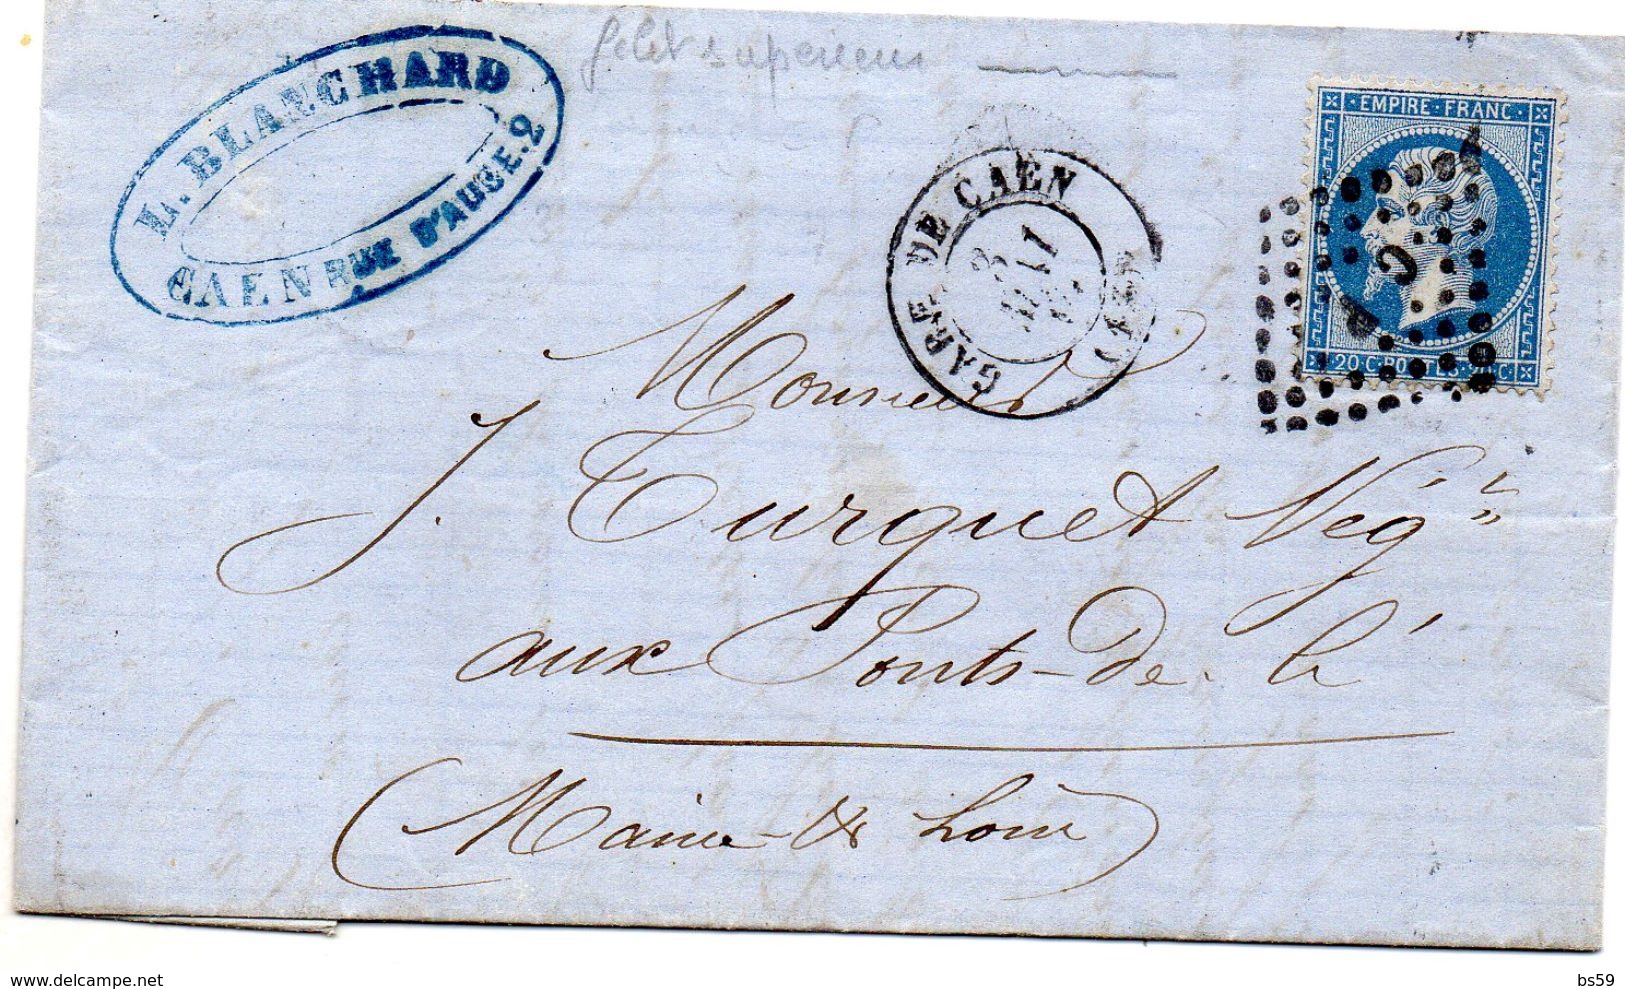 L. BLANCHARD
CAEN RUE D'AUGE. 2
filet superieur
EMPIRE · FRANC
20 · C · POSTES · 20 · C
GARE DE CAEN
MAI
Monsieur
J. Turquet Nég
aux Ponts-de-Cé
(Maine-& Loire)
delcampe.net
bs59